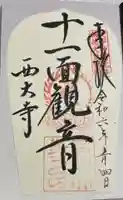 奉拝 令和六年五月四日
十一面観音
西大寺